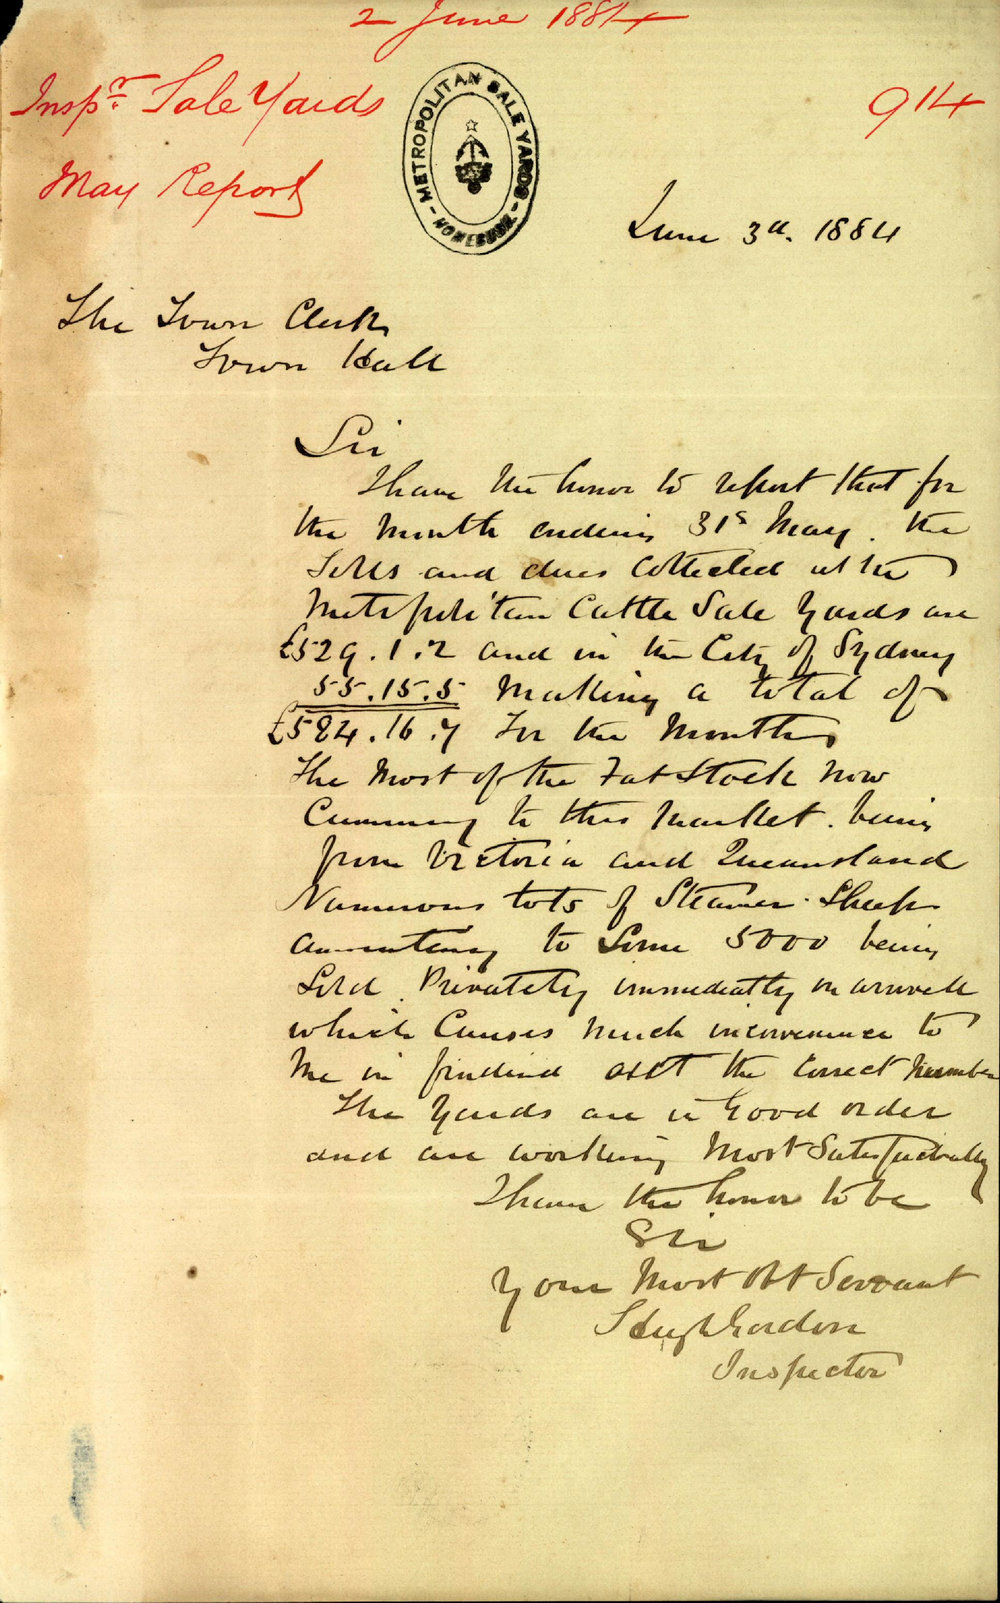 2 June 1884
Inspr. Sale Yards
914
May Report
METROPOLITAN SALE YARDS
HOMEBUSH
June 3d. 1884
The Town Clerk
Town Hall
Sir
I have the honor to report that for
the Month ending 31st May. the
Tolls and dues Collected at the
Metropolitan Cattle Sale Yards are
£529.1.2 and in the City of Sydney
55.15.5 Making a total of
£584.16.7 For the Month
The Most of the Fat Stock now
Cumming to this Market. being
from Victoria and Queensland
Numerous lots of Steamer Sheep
amounting to Some 5000 being
Sold. Privately immediatly on arivell
which Causes Much inconvenience to
Me in findind out the correct Number
The Yards are in Good order
and are working Most Satisfactually
I have the honor to be
Sir
Your Most Obt Servant
Hugh Gordon
Inspector